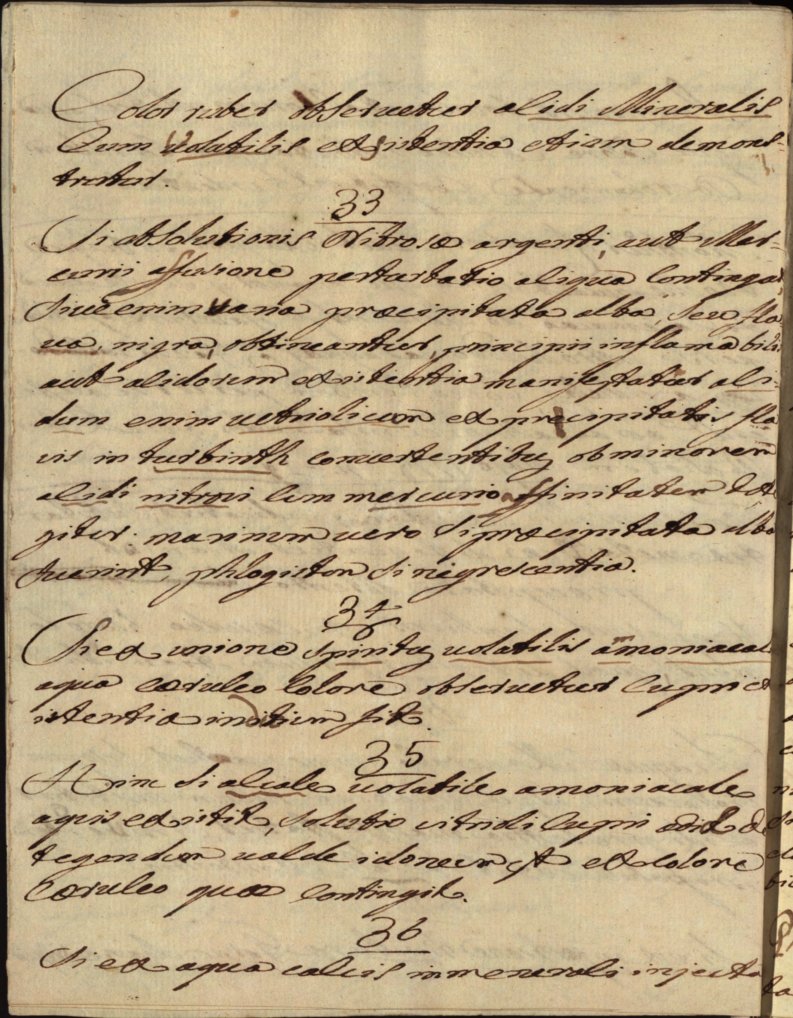 Color ruber observetur alidi Mineralis
Cum volatilis existentia etiam demons-
tratur.
33
Si absolutionis Nitrosæ argenti, aut Mer-
curii affusione perturbatio aliqua Contingat
Sive enim varia præcipitata alba, Seu fla
va, nigra, obtineantur, principii inflamabilis
aut alidorum existentia manifestatur ali-
dum enim vetriolicum ex precipitatis fla
vis in turbinth convertentibus, ob minorem
alidi nitrosi Cum mercurio affinitatem dete
gitur: marinum vero Si præcipitata alba
fuerint, phlogiston Si nigrescentia.
34
Si ex unione Spiritus volatilis amoniacal
aqua cœruleo Colore observetur Cupri ex
istentia initium fit.
35
Hinc Si alcale volatile amoniacale
aquis existit, Solutio vitrioli Cupri adit de
tegendum valde idoneum est ex colore
Cœruleo quæ Contingit.
36
Si ex aqua calcis in menerali injecta